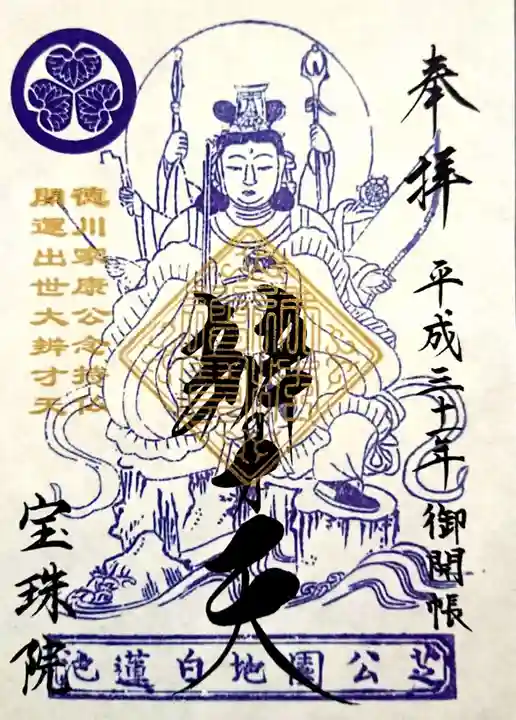 奉拝
平成三十一年御開帳
辨才天
徳川家康公念持仏
開運出世大辨才天
宝珠院
芝公園地白蓮池